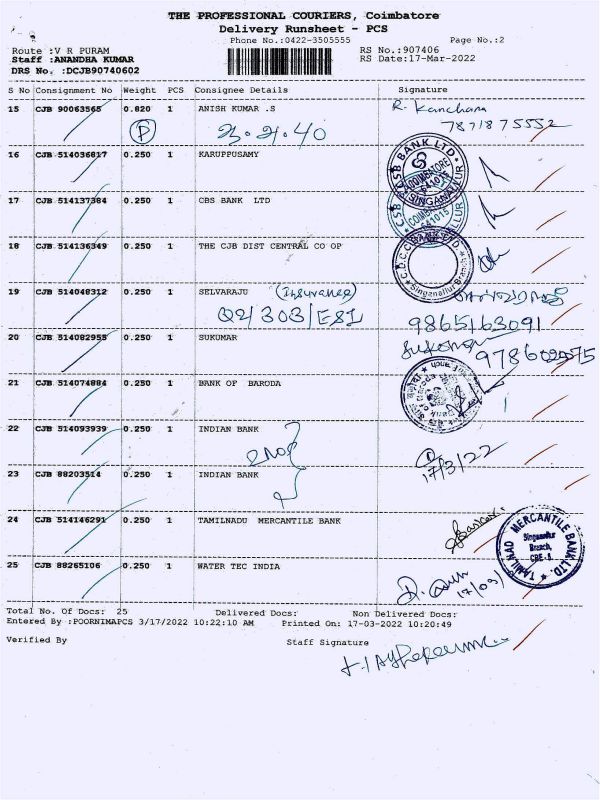 THE PROFESSIONAL COURIERS, Coimbatore
Delivery Runsheet - PCS
Phone No.:0422-3505555 Page No.:2
Route :V R PURAM RS No.:907406
Staff :ANANDHA KUMAR RS Date:17-Mar-2022
DRS No. :DCJB90740602
S No Consignment No Weight PCS Consignee Details Signature
15 CJB 90063565 0.820 1 ANISH KUMAR .S R. Kanchana
P 7871875552
16 CJB 514036817 0.250 1 KARUPPUSAMY
CSB BANK LTD COIMBATORE 641015 SINGANALLUR
17 CJB 514137384 0.250 1 CBS BANK LTD
CSB BANK LTD
18 CJB 514136349 0.250 1 THE CJB DIST CENTRAL CO OP
Singanallur Branch
19 CJB 514048312 0.250 1 SELVARAJU (Insurance)
Q2/303/ESI 9865163091
20 CJB 514082955 0.250 1 SUKUMAR
21 CJB 514074884 0.250 1 BANK OF BARODA
22 CJB 514093939 0.250 1 INDIAN BANK
17/3/22
23 CJB 88203514 0.250 1 INDIAN BANK
24 CJB 514146291 0.250 1 TAMILNADU MERCANTILE BANK
TAMILNAD MERCANTILE BANK LTD. Singanallur Branch, CBE - 5.
25 CJB 88265106 0.250 1 WATER TEC INDIA
17/03/
Total No. Of Docs: 25 Delivered Docs: Non Delivered Docs:
Entered By :POORNIMAPCS 3/17/2022 10:22:10 AM Printed On: 17-03-2022 10:20:49
Verified By Staff Signature